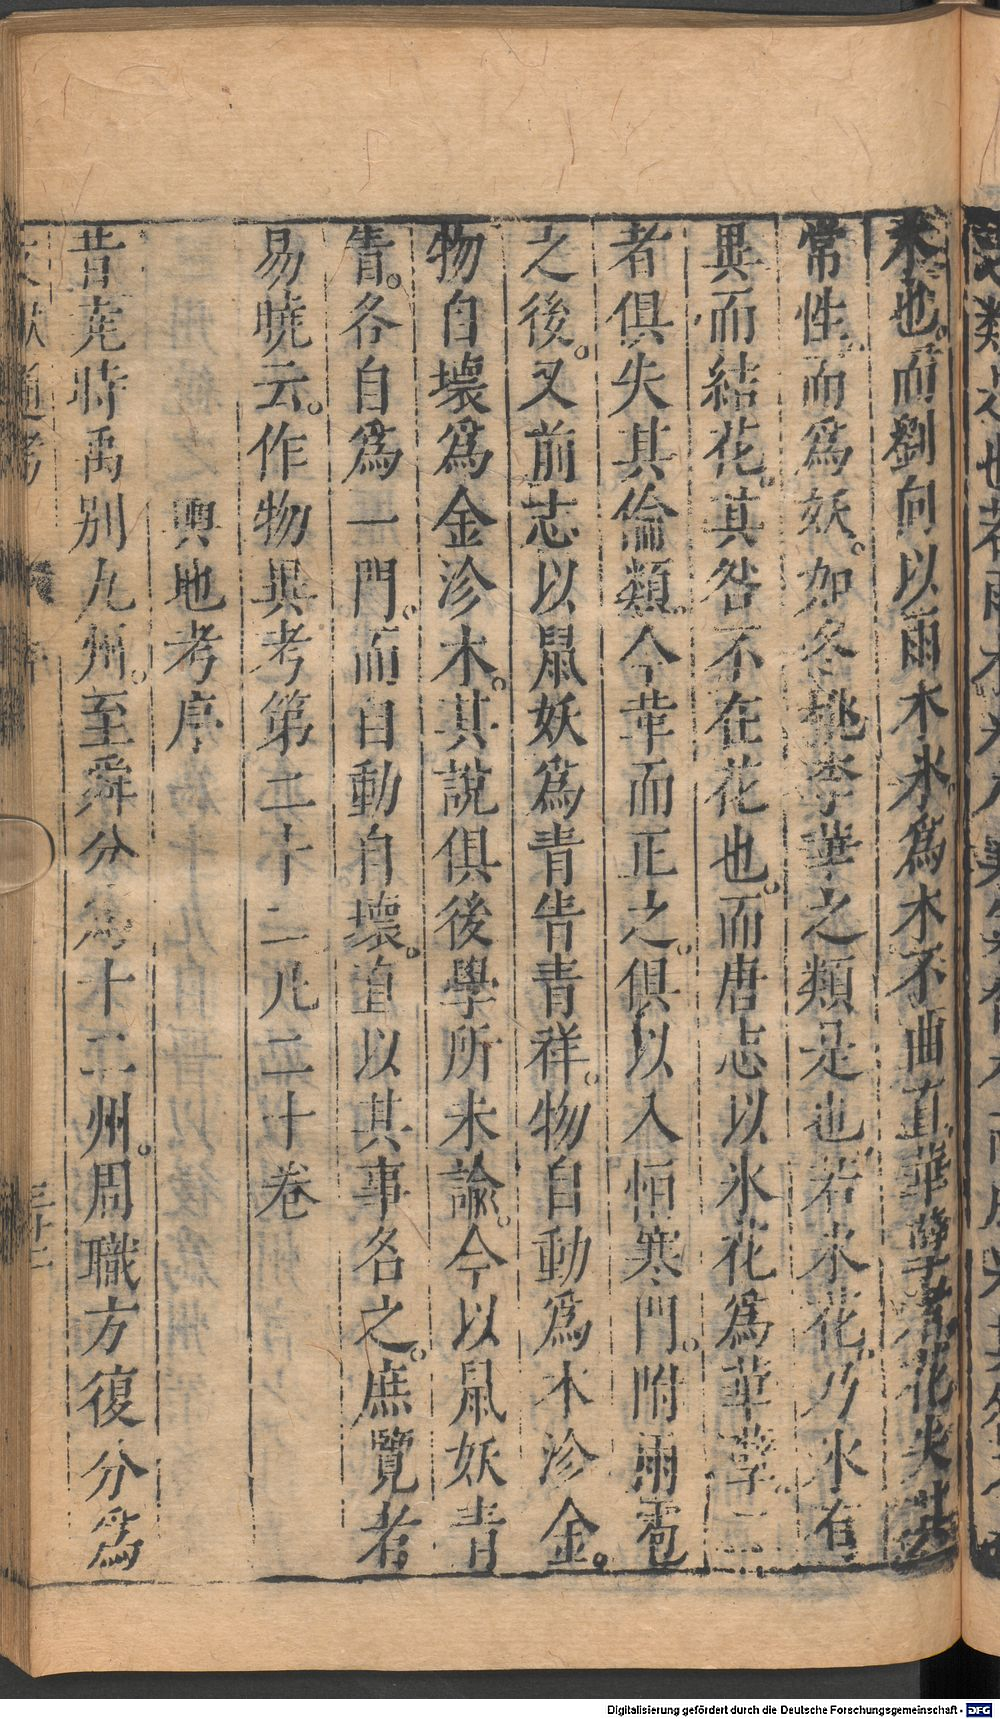 木也而劉向以雨木氷爲木不曲直華孽者花失其
常性而爲妖如冬桃李華之類是也若氷花乃氷有
異而結花其咎不在花也而唐志以氷花爲華孽二
者俱失其倫類今革而正之俱以入恒寒門附雨雹
之後又前志以鼠妖爲青眚青祥物自動爲木沴金
物自壞爲金沴木其說俱後學所未諭今以鼠妖青
眚各自爲一門而自動自壞直以其事名之庶覽者
易曉云作物異考第二十二凡二十卷
輿地考序
昔堯時禹别九州至舜分爲十二州周職方復分爲
文獻通考 序 三十二
Digitalisierung gefördert durch die Deutsche Forschungsgemeinschaft - DFG